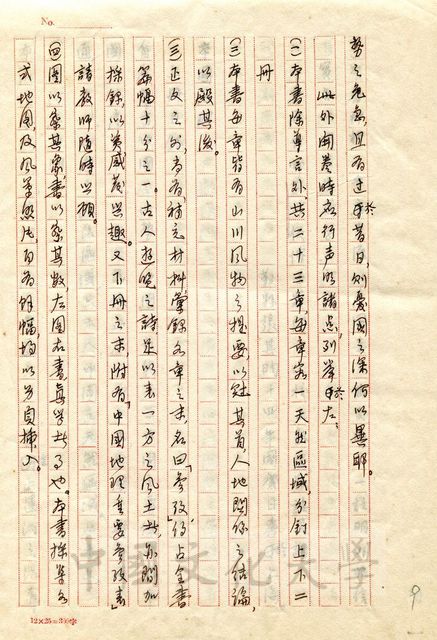 No.
勢之危急，且有過於昔日，則憂國之深何以異耶。
此外開卷時應行声明諸點，列舉於左：
(一)本書除導言外，共二十三章，每章容一天然區域，分釘上下二
冊
(二)本書每章皆有山川風物之提要以冠其首，人地關係之結論，
以殿其後。
(三)正文之外，尚有補充材料，彙錄各章之末，名曰「參攷」，約占全書
篇幅十分之一。古人遊覽之詩，足以表一方之風土者，亦間加
採錄，以資感發興趣。又下冊之末，附有「中國地理重要參攷書」
請教師隨時瀏覽。
(四)圖以察其象，書以察其數，左圖右書，為學者事也。本書採集各
式地圖及風景照片，百有餘幅，均以另頁插入。
中國文化大學
9
12×25=300字